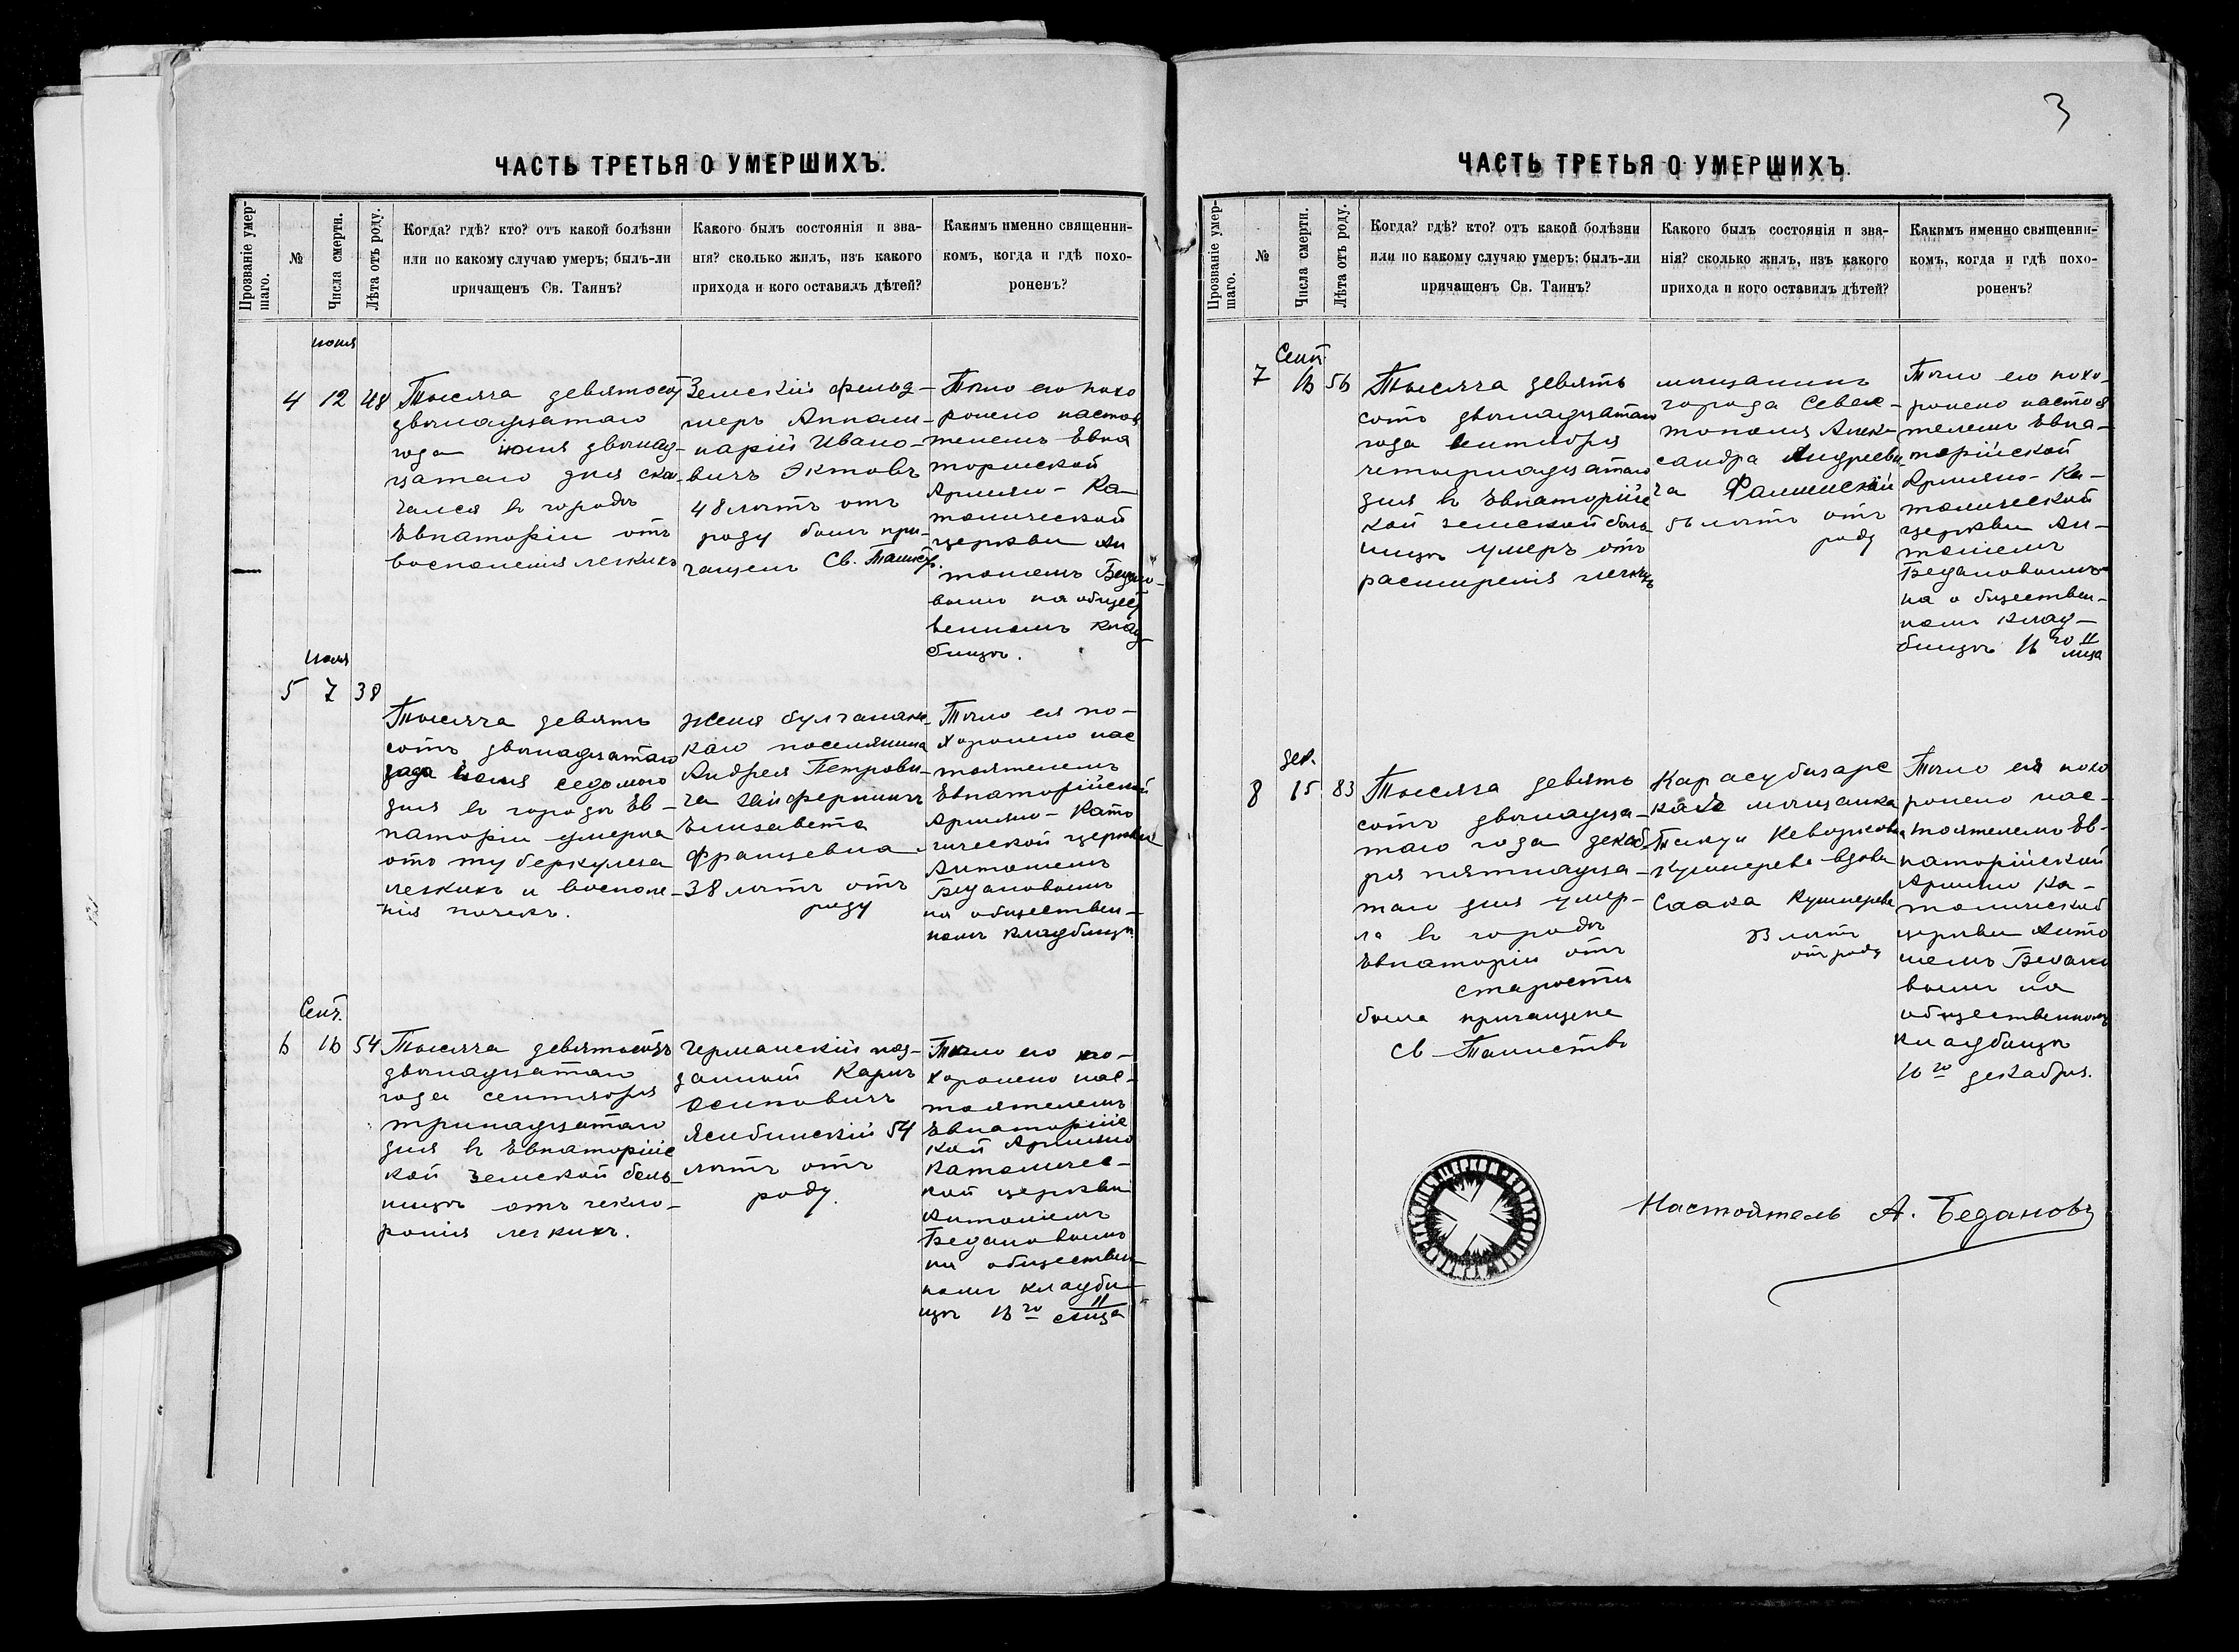 3
ЧАСТЬ ТРЕТЬЯ О УМЕРШИХЪ.
Прозваніе умер-
шаго.
№
Числа смерти.
Лѣта отъ роду.
Когда? гдѣ? кто? отъ какой болѣзни
или по какому случаю умеръ; былъ-ли
причащенъ Св. Таинъ?
Какого былъ состоянія и зва-
нія? сколько жилъ, изъ какого
прихода и кого оставилъ дѣтей?
Какимъ именно священни-
комъ, когда и гдѣ похо-
роненъ?
июня
4 12 48
Тысяча девятьсот
двѣнадцатаго
года июня двѣнад-
цатаго дня скон-
чался въ городѣ
Евпаторіи отъ
воспаленія легкихъ
Земскій фельд-
шеръ Аппали-
нарій Ивано-
вичъ Эктовъ
48 лѣтъ отъ
роду былъ при-
чащенъ Св. Таинств.
Тѣло его похо
ронено настоя
телемъ Евпа
торійской
Армяно-Ка
толической
церкви Ан
тоніемъ Бедано-
вымъ на общест
венномъ клад-
бищѣ.
июля
5 7 38
Тысяча девять
сотъ двѣнадцатаго
года июля седьмого
дня въ городѣ Ев-
паторіи умерла
отъ туберкулеза
легкихъ и воспале-
нія почекъ.
жена булганакс-
каго поселянина
Андрея Петрови-
ча
Елизавета
Францевна
38 лѣтъ отъ
роду
Тѣло ея по-
хоронено нас
тоятелемъ
Евпаторійской
Армяно-Като
лической церкви
Антоніемъ
Бедановымъ
на обществен-
номъ кладбищѣ.
Сент.
6 16 54
Тысяча девятьсотъ
двѣнадцатаго
года сентября
тринадцатаго
дня въ Евпаторійс
кой земской боль-
ницѣ отъ
легкихъ.
Германскій под-
данный Карлъ
Осиповичъ
Ясибинскій 54
лѣтъ отъ
роду.
Тѣло его по-
хоронено нас-
тоятелемъ
Евпаторійс
кой Армяно
Католичес-
кой церкви
Антоніемъ
Бедановымъ
на обществен-
номъ кладби-
щѣ 16го
ЧАСТЬ ТРЕТЬЯ О УМЕРШИХЪ.
Прозваніе умер-
шаго.
№
Числа смерти.
Лѣта отъ роду.
Когда? гдѣ? кто? отъ какой болѣзни
или по какому случаю умеръ: былъ-ли
причащенъ Св. Таинъ?
Какого былъ состоянія и зва-
нія? сколько жилъ, изъ какого
прихода и кого оставилъ дѣтей?
Какимъ именно священни-
комъ, когда и гдѣ похо-
роненъ?
Сент
7 16 56
Тысяча девять
сотъ двѣнадцатаго
года сентября
четырнадцатаго
дня въ Евпаторійс
кой земской боль
ницѣ умеръ отъ
расширенія легкихъ
мѣщанинъ
города Севас-
тополя Алек-
сандра Андрееви
ча
56 лѣтъ отъ
роду
Тѣло его похо-
ронено настоя
телемъ Евпа-
торійской
Армяно-Ка-
толической
церкви Ан-
тоніемъ
Бедановымъ
на обществен-
номъ клад-
бищѣ 16го
дек.
8 15 83
Тысяча девять
сотъ двѣнадца-
таго года декаб-
ря пятнадца-
таго дня умер-
ла въ городѣ
Евпаторіи отъ
старости
была причащена
Св Таинство
Карасубазарс
кая мѣщанка
Кеворковна
вдова
Саака
83 лѣтъ
отъ роду
Тѣло ея похо
ронено нас-
тоятелемъ Ев-
паторійской
Армяно Ка-
толической
церкви Анто
ніемъ Бедано
вымъ на
общественномъ
кладбищѣ
16го декабря.
Настоятель А. Бедановъ